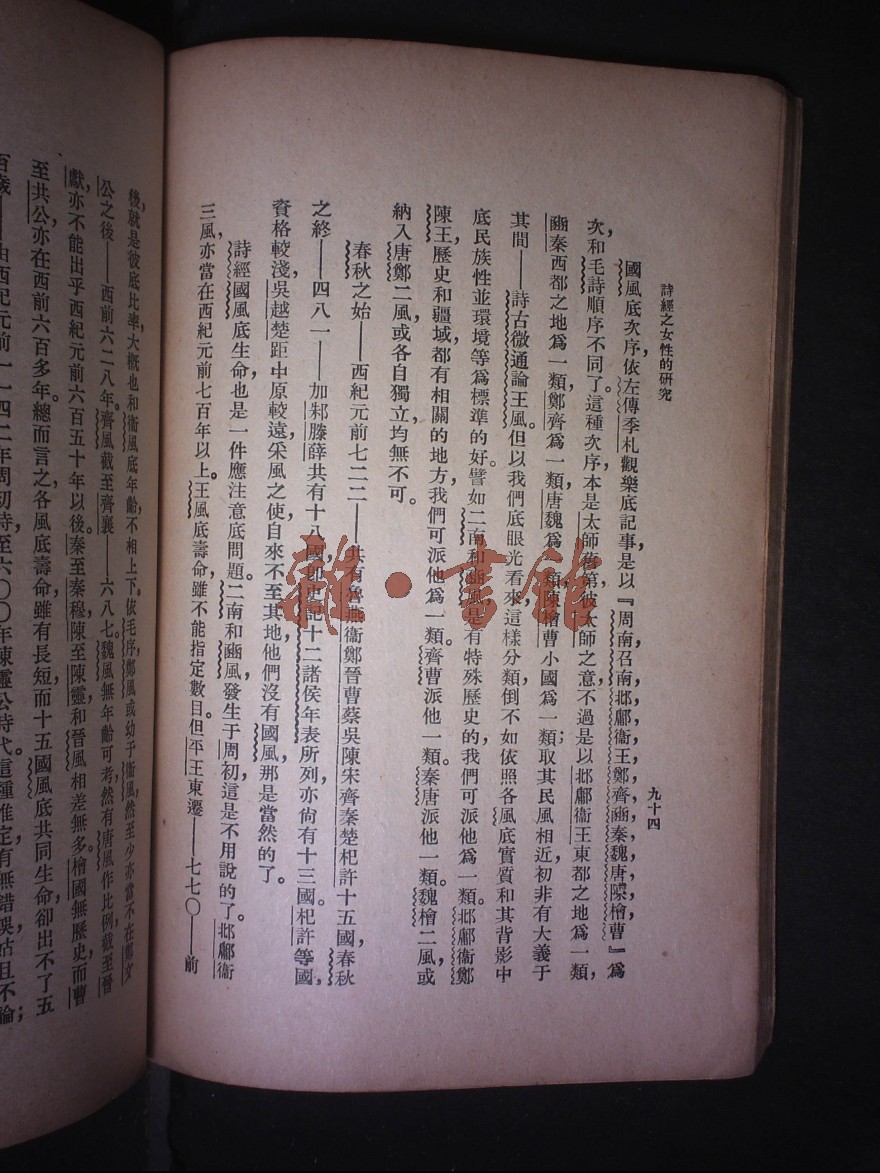 詩經之女性的研究
九十四
國風底次序,依左傳季札觀樂底記事是以『周南,召南,邶,鄘,衞,王,鄭,齊,豳,秦,魏,唐,陳,檜,曹』爲
次,和毛詩順序不同了。這種次序本是太師舊第,彼太師之意不過是以邶鄘衞王東都之地爲一類,
豳秦西都之地爲一類,鄭齊爲一類,唐魏爲一類,陳檜曹小國爲一類;取其民風相近,初非有大義于
其間——詩古微通論王風。但以我們底眼光看來,這樣分類,倒不如依照各風底實質和其背影中
底民族性並環境等爲標準的好。譬如二南和豳風是有特殊歷史的,我們可派他爲一類。邶鄘衞鄭
陳王歷史和疆域都有相關的地方,我們可派他爲一類。齊曹派他一類。秦唐派他一類。魏檜二風,或
納入唐鄭二風,或各自獨立,均無不可。
春秋之始——西紀元前七二二——共有魯燕衞鄭晉曹蔡吳陳宋齊秦楚杞許十五國,春秋
之終——四八一——加邾滕薛共有十八國,卽史記十二諸侯年表所列,亦尙有十三國。杞許等國,
資格較淺,吳越楚距中原較遠,采風之使,自來不至其地,他們沒有國風,那是當然的了。
詩經國風底生命也是一件應注意底問題。二南和豳風發生于周初,這是不用說的了。邶鄘衞
三風亦當在西紀元前七百年以上。王風底壽命,雖不能指定數目。但平王東遷——七七〇——前
後,就是彼底比率,大概也和衞風底年齡不相上下。依毛序鄭風或幼于衞風,然至少亦當不在鄭文
公之後——西前六二八年。齊風截至齊襄——六八七。魏風無年齡可考,然有唐風作比例,截至晉
獻,亦不能出乎西紀元前六百五十年以後。秦至秦穆,陳至陳靈,和晉風相差無多。檜國無歷史,而曹
至共公亦在西前六百多年。總而言之,各風底壽命雖有長短,而十五國風底共同生命卻出不了五
百歲——由西紀元前一一四二年周初時至六〇〇年陳靈公時代。這種推定有無錯誤,姑且不論;